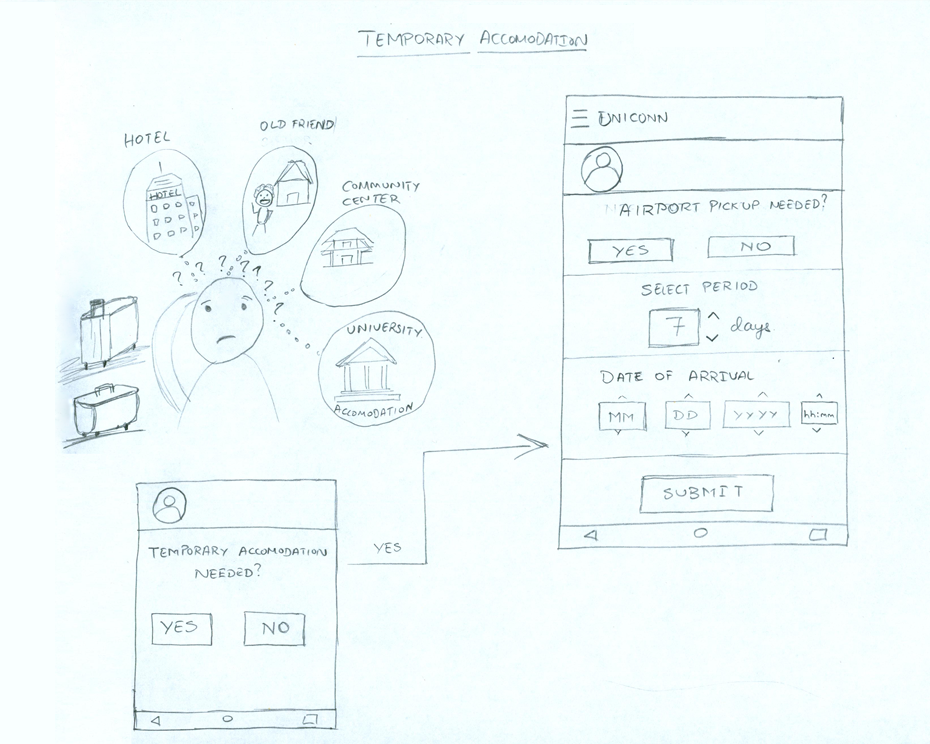 TEMPORARY ACCOMODATION
HOTEL
OLD FRIEND
COMMUNITY
CENTER
HOTEL
? ? ? ? ? ? ?
UNIVERSITY
ACCOMODATION
TEMPORARY ACCOMODATION
NEEDED?
YES
NO
YES
UNICONN
AIRPORT PICKUP NEEDED?
YES
NO
SELECT PERIOD
7 days
DATE OF ARRIVAL
MM DD YYYY hh:mm
SUBMIT